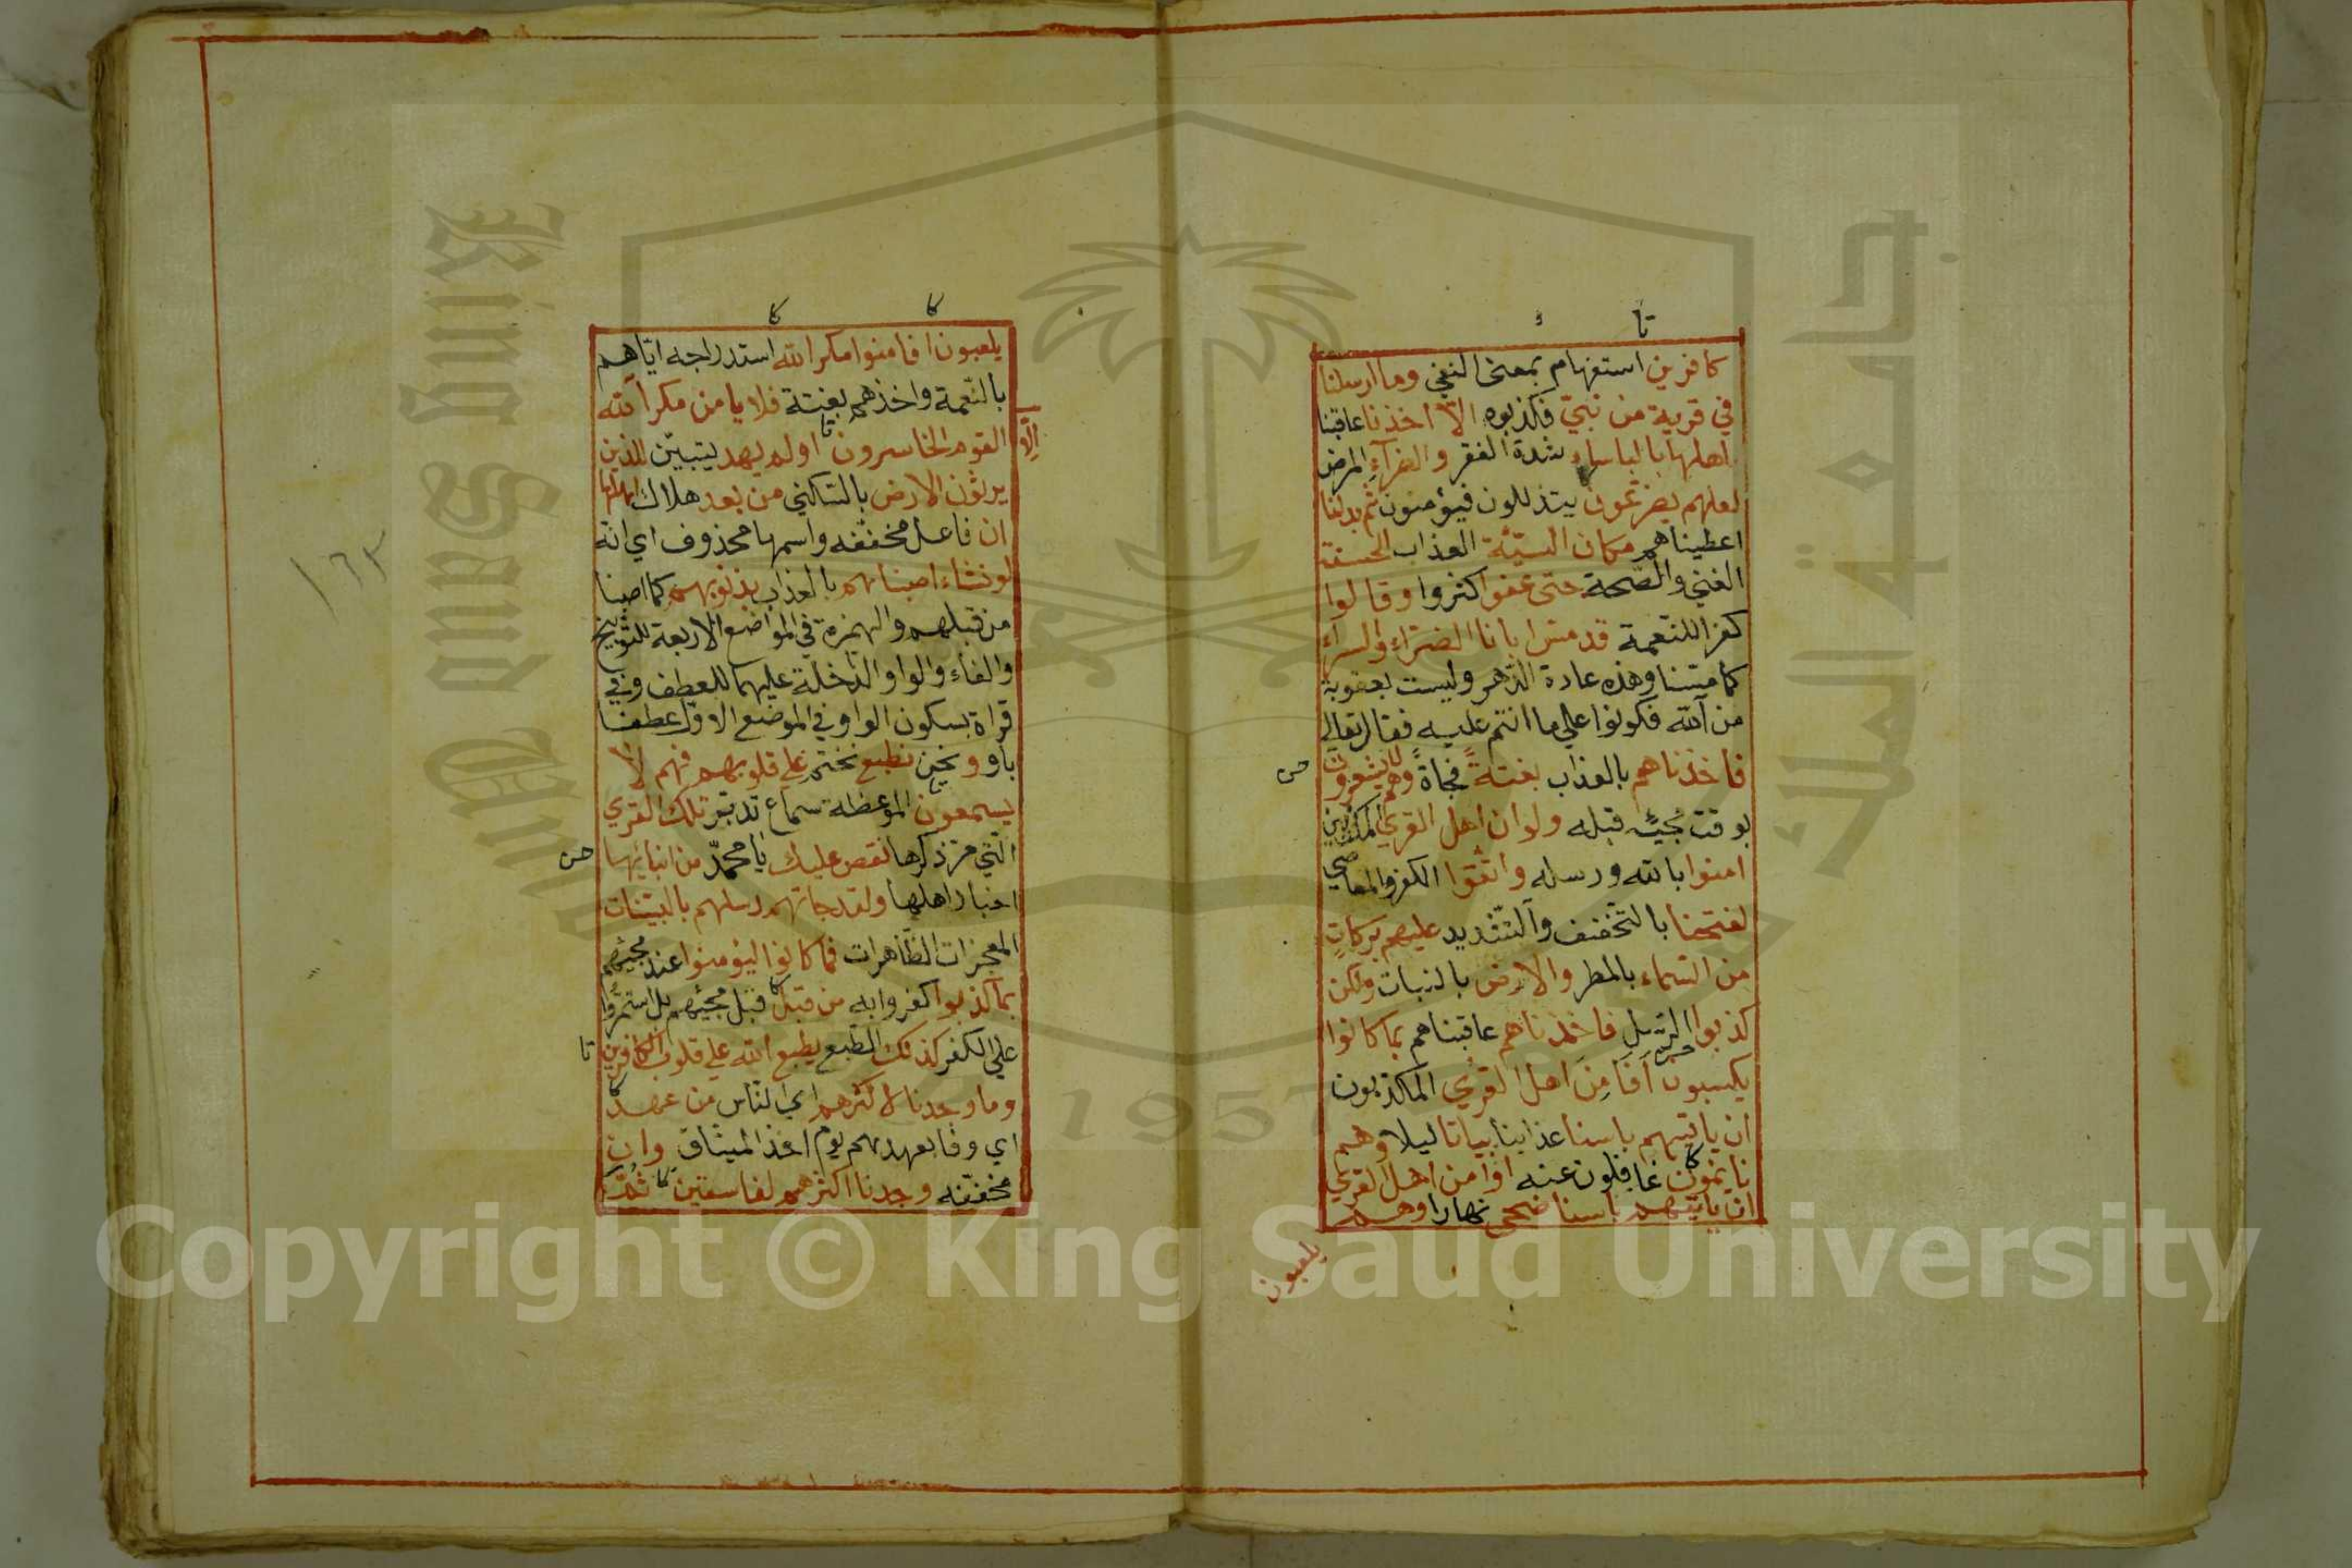 كافرين استفهام بمعنى النفي وما ارسلنا
في قرية من نبيّ فكذبوه الّا اخذنا عاقبنا
اهلها بالباساء شدة الفقر والضرّاء المرض
لعلهم يضرّعون يتذللون فيؤمنون ثم بدلنا
اعطيناهم مكان السيّئة العذاب الحسنة
الغني والصّحة حتى عفوا كثروا وقالوا
كفرا للنّعمة قد مسّ ابانا الضرّاء والسراء
كما مسّنا وهذه عادة الدّهر وليست بعقوبة
من الله فكونوا علي ما انتم عليه فقال تعالى
فاخذناهم بالعذاب بغتةً فجاةً وهم لا يشعرون
بوقت مجيئه قبله ولو ان اهل القري المكذبين
امنوا بالله ورسله واتّقوا الكفر والمعاصي
لفتحنا بالتّخفيف والتّشديد عليهم بركاتٍ
من السّماء بالمطر والارض بالنبات ولكن
كذبوا الرّسل فاخذناهم عاقبناهم بما كانوا
يكسبون اَفَاَمِنَ اهل القُري المكذبون
ان ياتيهم باسنا عذابنا بياتا ليلا وهم
نايمون غافلون عنه اوامن اهل القري
ان ياتيهم باسنا ضحى نهارا وهم
يلعبون
يلعبون افامنوا مكر الله استدراجه ايّاهم
بالنّعمة واخذهم بغتة فلا يامن مكر الله
الّا القوم الخاسرون اولم يهد يتبيّن للذين
يرثون الارض بالسّكني من بعد هلاك اهلها
ان فاعل مخفّفه واسمها محذوف اي انّه
لو نشاء اصبناهم بالعذاب بذنوبهم كما اصبنا
من قبلهم والهمزة في المواضع الاربعة للتّوبيخ
والفاء والواو الدّاخلة عليهما للعطف وفي
قراة بسكون الواو في الموضع الاوّل عطفا
باو ونحن نطبع نختم علي قلوبهم فهم لا
يسمعون الموعظة سماع تدبّر تلك القري
الّتي مرّ ذكرها نقص عليك يا محمّد من انبائها
اخبار اهلها ولقد جاتهم رسلهم بالبيّنات
المعجزات الظّاهرات فما كانوا ليؤمنوا عند مجيئهم
بما كذبوا كفروا به من قبل قبل مجيئهم بل استمرّوا
علي الكفر كذلك الطّبع يطبع الله علي قلوب الكافرين
وما وجدنا لاكثرهم اي النّاس من عهد
اي وفا بعهدهم يوم اخذ الميثاق وان
مخفّفه وجدنا اكثرهم لفاسقين ثمّ
١٦٣
King Saud University
جامعة الملك
1957
Copyright © King Saud University